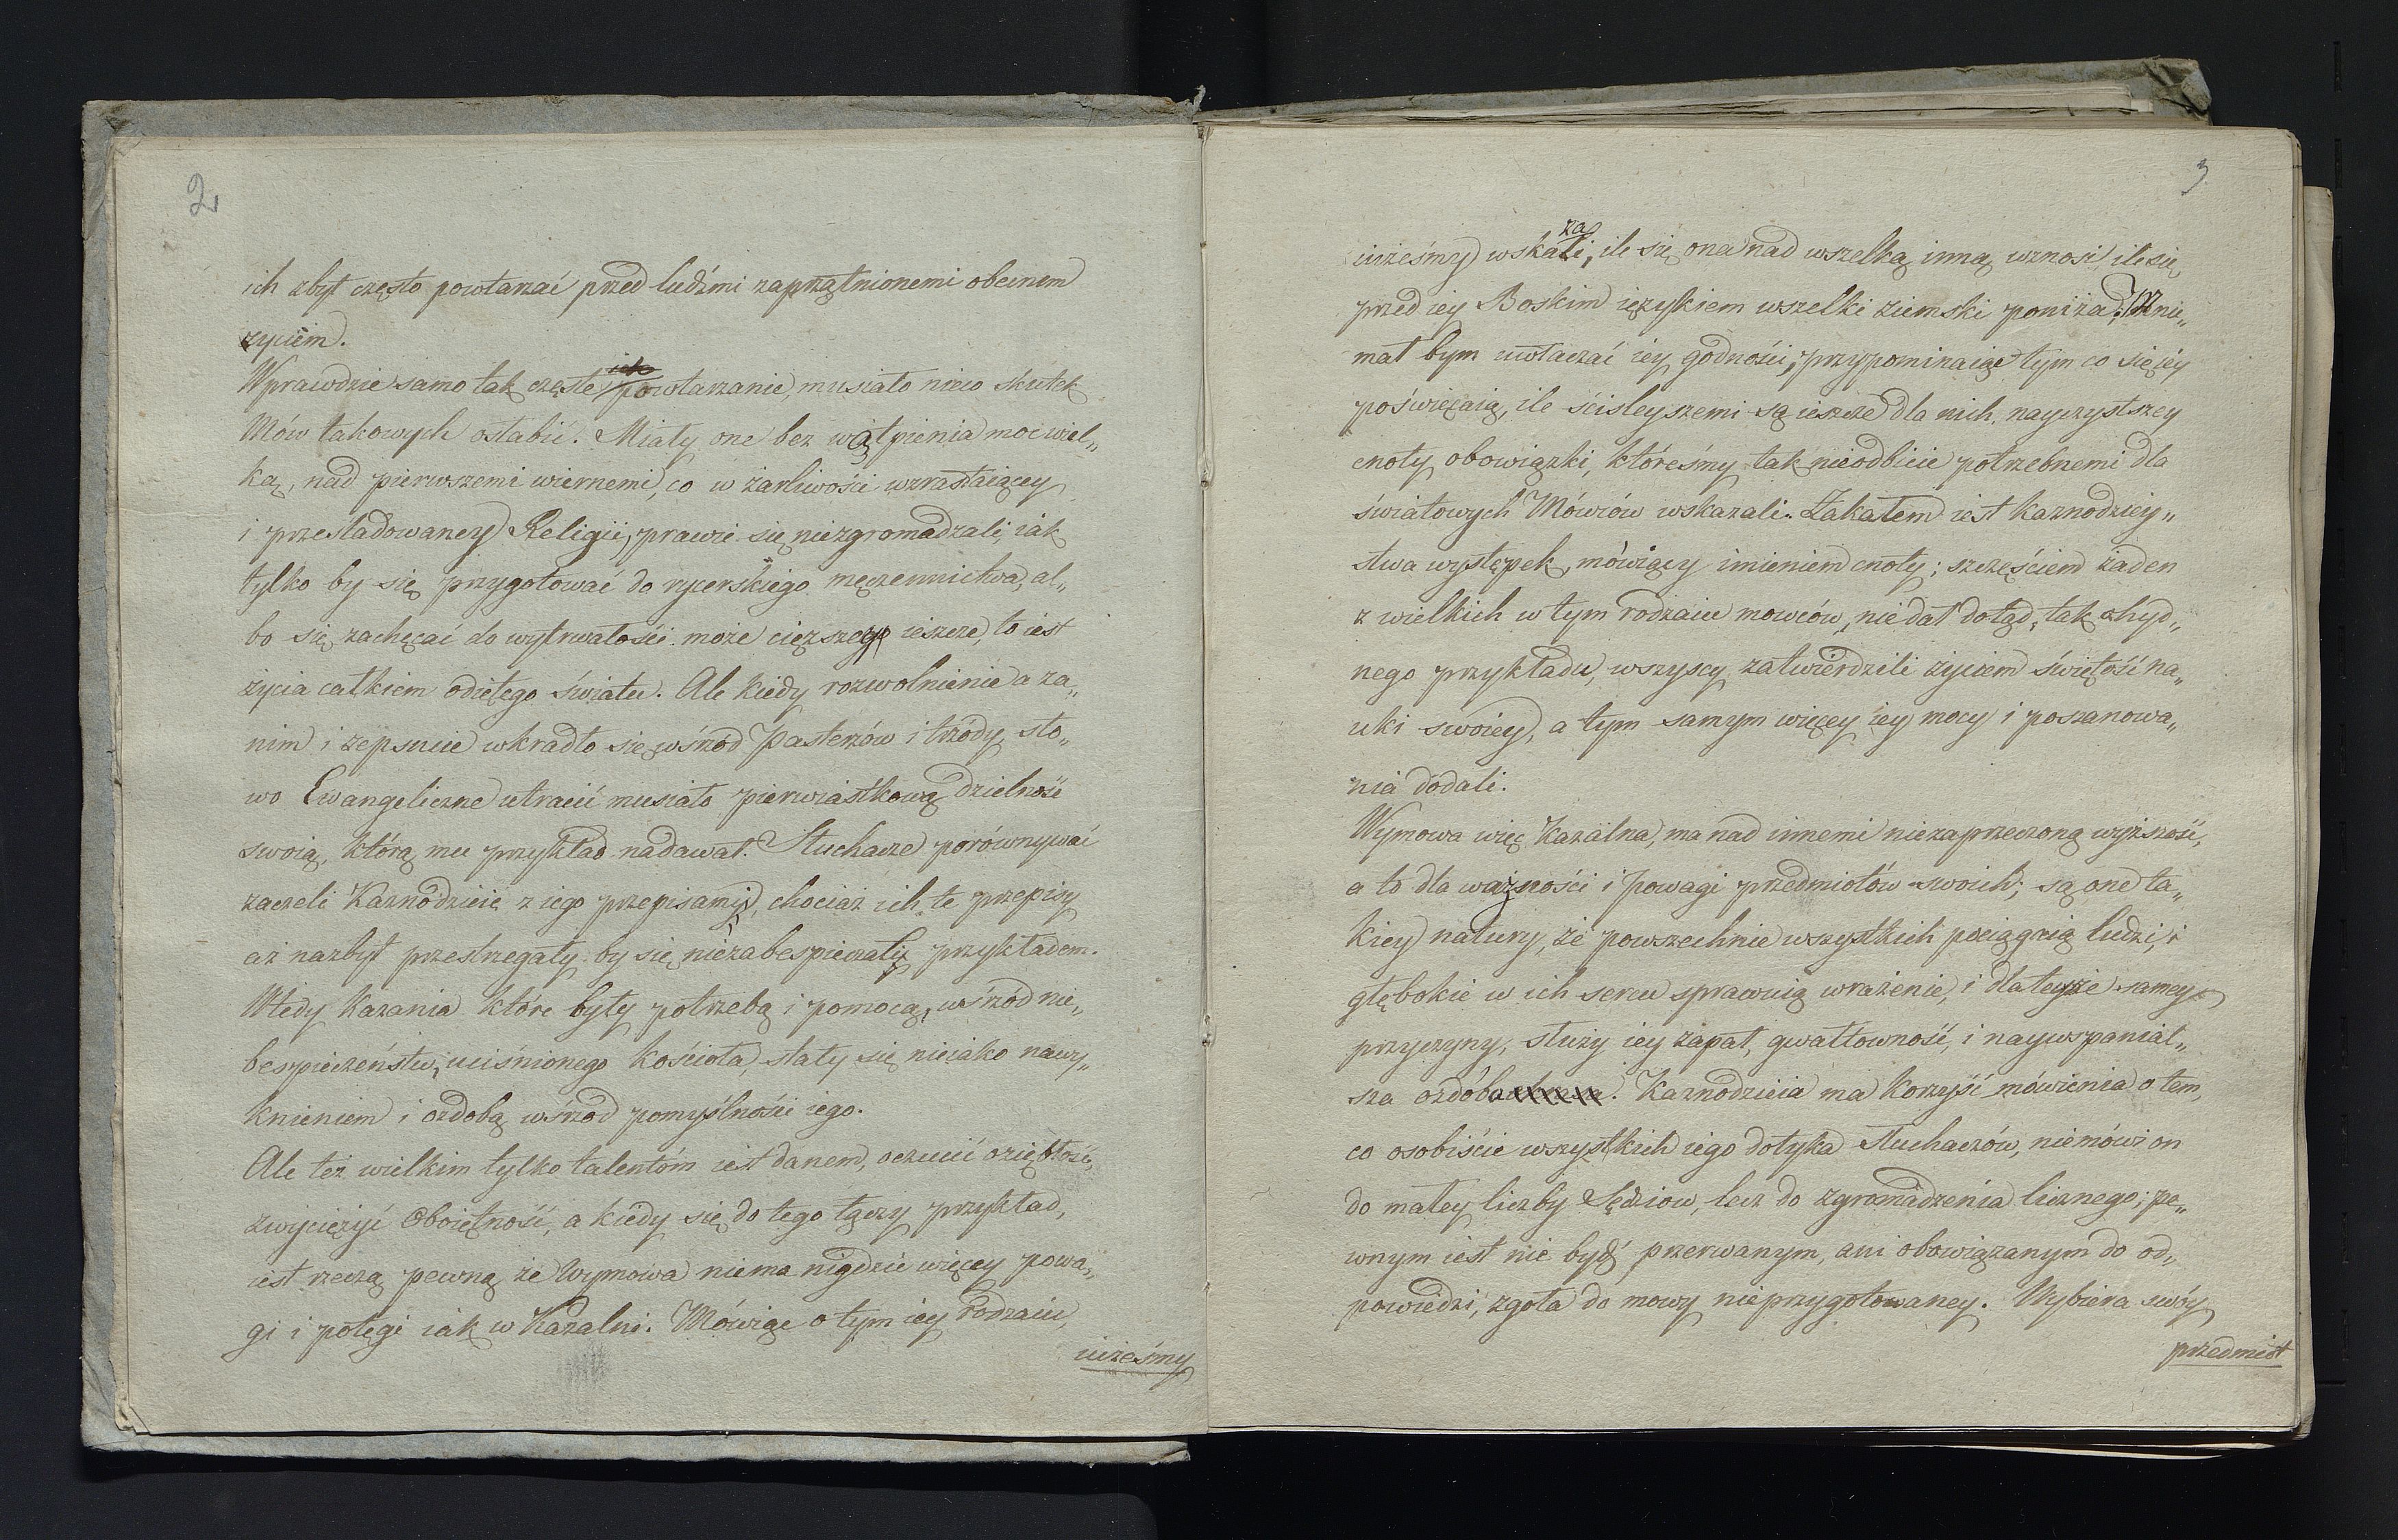 2
ich zbyt często powtarzać przed ludźmi zaprzątnionemi obecnem
życiem.
Wprawdzie samo tak częste ich powtarzanie, musiało nieco skutek
Mów takowych osłabić. Miały one bez wątpienia moc wiel„
ką, nad pierwszemi wiernemi, co w żarliwości wzrastaiącey
i prześladowaney Religii, prawie się niezgromadzali, iak
tylko by się przygotować do rycerskiego męczennictwa, al„
bo się zachęcać do wytrwałości może cięższey ieszcze, to iest
życia całkiem odiętego światu. Ale kiedy rozwolnienie a za„
nim i zepsucie wkradło się wśród Pasterzów i trzódy, sło„
wo Ewangeliczne utracić musiało pierwiastkową dzielność
swoią, którą mu przykład nadawał. Słuchacze porównywać
zaczeli Kaznodzieię z iego przepisami, chociaż ich te przepisy
aż nazbyt przestrzegały by się niezabespieczali przykładem.
Wtedy Kazania które były potrzebą i pomocą, wśród nie„
bespieczeństw, uciśnionego kościoła, stały się nieiako nawy„
knieniem i ozdobą wśród pomyślności iego.
Ale też wielkim tylko talentóm iest danem, ocucić oziębłość,
zwyciężyć Oboiętność, a kiedy się do tego łączy przykład,
iest rzeczą pewną że Wymowa niema nigdzie więcey powa„
gi i potęgi iak w Kazalni. Mówiąc o tym iey rodzaiu,
uiżeśmy
3
iużeśmy wskazali, ile się ona nad wszelką inną wznosi ile się
przed iey Boskim ięzykiem wszelki ziemski poniża; mnie„
mał bym uwłaczać iey godności, przypominaiąc tym co się iéy
poświęcaią, ile ściśleyszemi są ieszcze dla nich, nayczystszey
cnoty obowiązki, któreśmy tak nieodbicie potrzebnemi dla
światowych Mówców wskazali. Zakałem iest kaznodziey„
stwa występek, mówiący imieniem cnoty; szczęściem żaden
z wielkich w tym rodzaiu mowców, nie dał dotąd, tak ohyd„
nego przykładu, wszyscy zatwierdzili życiem świętość na„
uki swoiey, a tym samym więcey iey mocy i poszanowa„
nia dodali.
Wymowa więc Kazalna, ma nad innemi niezaprzeczoną wyższość,
a to dla ważności i powagi przedmiotów swoich; są one ta„
kiey natury, że powszechnie wszystkich pociągaią ludzi, i
głębokie w ich sercu sprawuią wrażenie, i dla teyże samey
przyczyny, służy iey zapał, gwałtowność, i naywspanial„
sza ozdoba. Kaznodzieia ma korzyść mówienia o tem,
co osobiście wszystkich iego dotyka słuchaczów, niemówi on
do małey liczby Sędziow, lecz do zgromadzenia licznego; pe„
wnym iest nie bydź przerwanym, ani obowiązanym do od„
powiedzi, zgoła do mowy nieprzygotowaney. Wybiera swóy
przedmiot